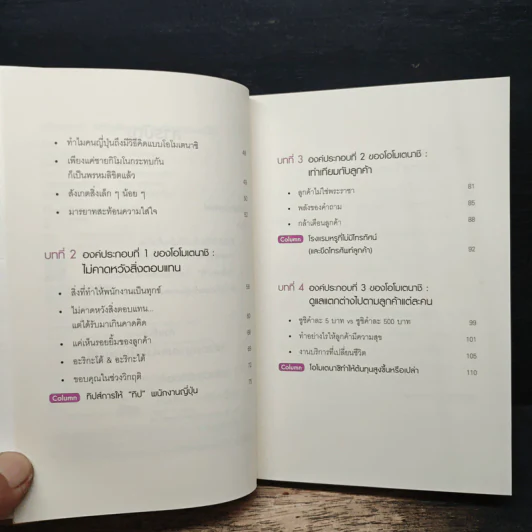 • ทำไมคนญี่ปุ่นถึงมีวิธีคิดแบบโอโมเตนาชิ
• เพียงแค่ชายกิโมโนกระทบกัน
ก็เป็นพรหมลิขิตแล้ว
• สังเกตสิ่งเล็ก ๆ น้อย ๆ
• มารยาทสะท้อนความใส่ใจ
บทที่ 2 องค์ประกอบที่ 1 ของโอโมเตนาชิ :
ไม่คาดหวังสิ่งตอบแทน
• สิ่งที่ทำให้พนักงานเป็นทุกข์
• ไม่คาดหวังสิ่งตอบแทน...
แต่ได้รับมาเกินคาดคิด
• แค่เห็นรอยยิ้มของลูกค้า
• อะริกะโต้ & อะริกะโต้
• ขอบคุณในช่วงวิกฤติ
Column ทิปส์การให้ "ทิป" พนักงานญี่ปุ่น
บทที่ 3 องค์ประกอบที่ 2 ของโอโมเตนาชิ :
เท่าเทียมกับลูกค้า
• ลูกค้าไม่ใช่พระราชา 81
• พลังของคำถาม 85
• กล้าเตือนลูกค้า 88
Column โรงแรมหรูที่ไม่มีโทรทัศน์
(และยึดโทรศัพท์ลูกค้า) 92
บทที่ 4 องค์ประกอบที่ 3 ของโอโมเตนาชิ :
ดูแลแตกต่างไปตามลูกค้าแต่ละคน
• ซูชิคำละ 5 บาท vs ซูชิคำละ 500 บาท 99
• ทำอย่างไรให้ลูกค้ามีความสุข 101
• งานบริการที่เปลี่ยนชีวิต 105
Column โอโมเตนาชิทำให้ต้นทุนสูงขึ้นหรือเปล่า 110